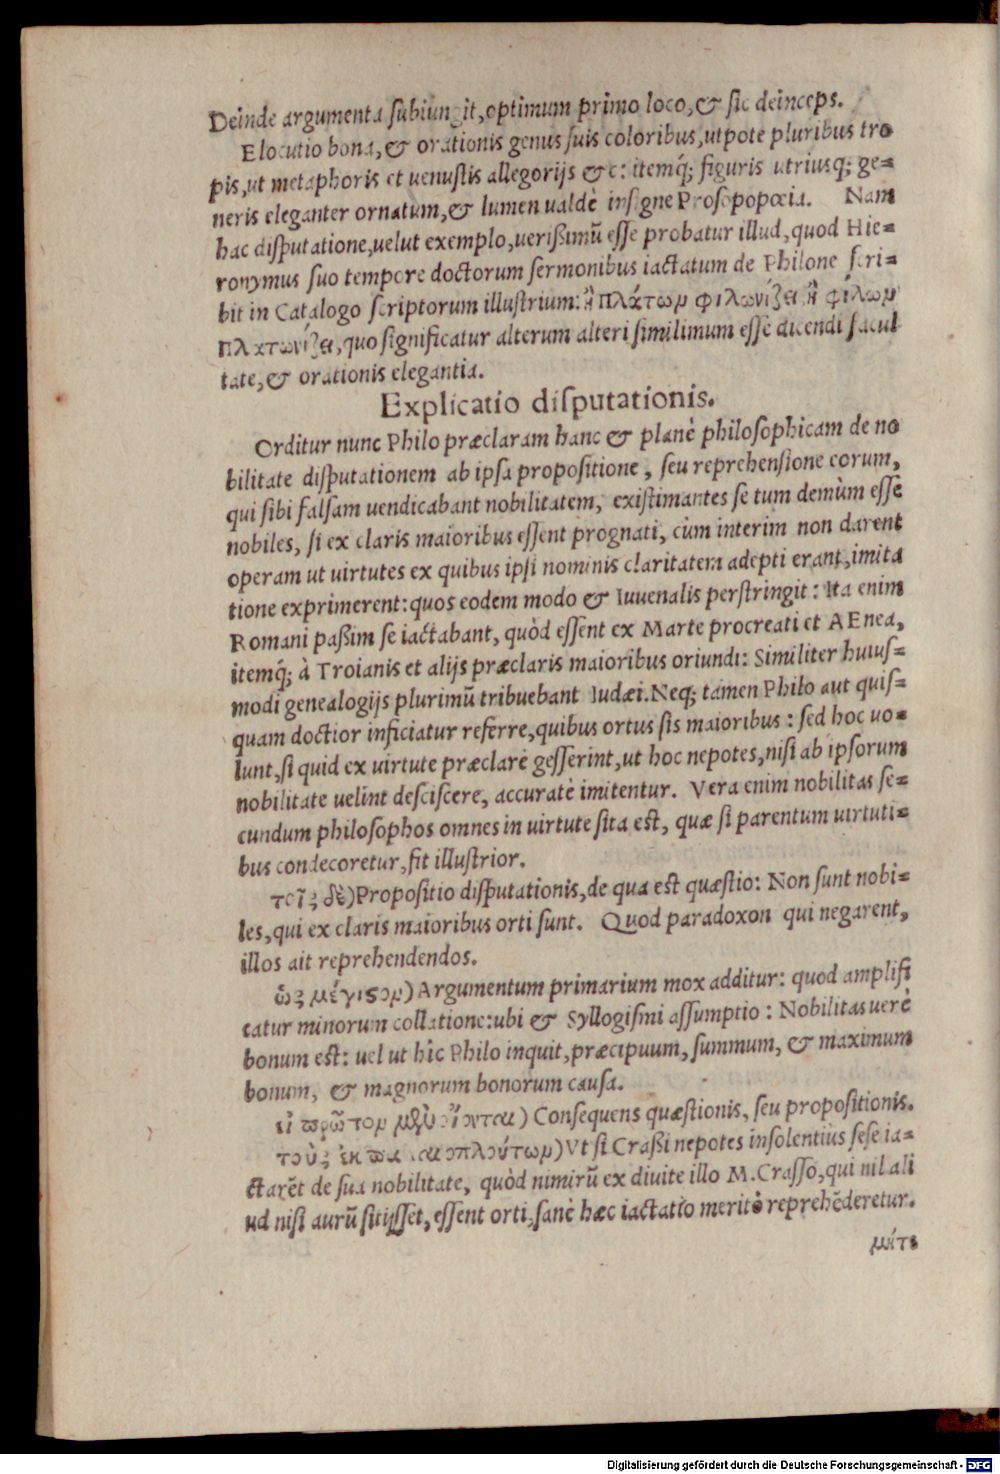 Deinde argumenta subiungit, optimum primo loco, & sic deinceps.
Elocutio bona, & orationis genus suis coloribus, utpote pluribus tro
pis, ut metaphoris et uenustis allegorijs &c: itemq́; figuris utriusq; ge=
neris eleganter ornatum, & lumen ualdè insigne Prosopopœia. Nam
hac disputatione, uelut exemplo, uerißimũ esse probatur illud, quod Hie=
ronymus suo tempore doctorum sermonibus iactatum de Philone scri=
bit in Catalogo scriptorum illustrium: ἢ πλάτων φιλωνίζει ἢ φίλων
πλατωνίζει, quo significatur alterum alteri similimum esse dicendi facul
tate, & orationis elegantia.
Explicatio disputationis.
Orditur nunc Philo præclaram hanc & planè philosophicam de no
bilitate disputationem ab ipsa propositione, seu reprehensione eorum,
qui sibi falsam uendicabant nobilitatem, existimantes se tum demùm esse
nobiles, si ex claris maioribus essent prognati, cùm interim non darent
operam ut uirtutes ex quibus ipsi nominis claritatem adepti erant, imita
tione exprimerent: quos eodem modo & Iuuenalis perstringit: Ita enim
Romani paßim se iactabant, quòd essent ex Marte procreati et AEnea,
itemq́; à Troianis et alijs præclaris maioribus oriundi: Similiter huius=
modi genealogijs plurimũ tribuebant Iudæi. Neq; tamen Philo aut quis=
quam doctior inficiatur referre, quibus ortus sis maioribus: sed hoc uo=
lunt, si quid ex uirtute præclarè gesserint, ut hoc nepotes, nisi ab ipsorum
nobilitate uelint desciscere, accuratè imitentur. Vera enim nobilitas se=
cundum philosophos omnes in uirtute sita est, quæ si parentum uirtuti=
bus condecoretur, fit illustrior.
τοῖς δὲ) Propositio disputationis, de qua est quæstio: Non sunt nobi=
les, qui ex claris maioribus orti sunt. Quod paradoxon qui negarent,
illos ait reprehendendos.
ὡς μέγιστον) Argumentum primarium mox additur: quod amplifi
catur minorum collatione: ubi & Syllogismi assumptio: Nobilitas uerè
bonum est: uel ut hîc Philo inquit, præcipuum, summum, & maximum
bonum, & magnorum bonorum causa.
εἰ πρῶτον μὲν οἴονται) Consequens quæstionis, seu propositionis.
τοὺς ἐκ παλαιοπλούτων) Vt si Craßi nepotes insolentiùs sese ia=
ctarẽt de sua nobilitate, quòd nimirũ ex diuite illo M. Crasso, qui nil ali
ud nisi aurũ sitijsset, essent orti, sanè hæc iactatio meritò reprehẽderetur.
μήτε
Digitalisierung gefördert durch die Deutsche Forschungsgemeinschaft - DFG